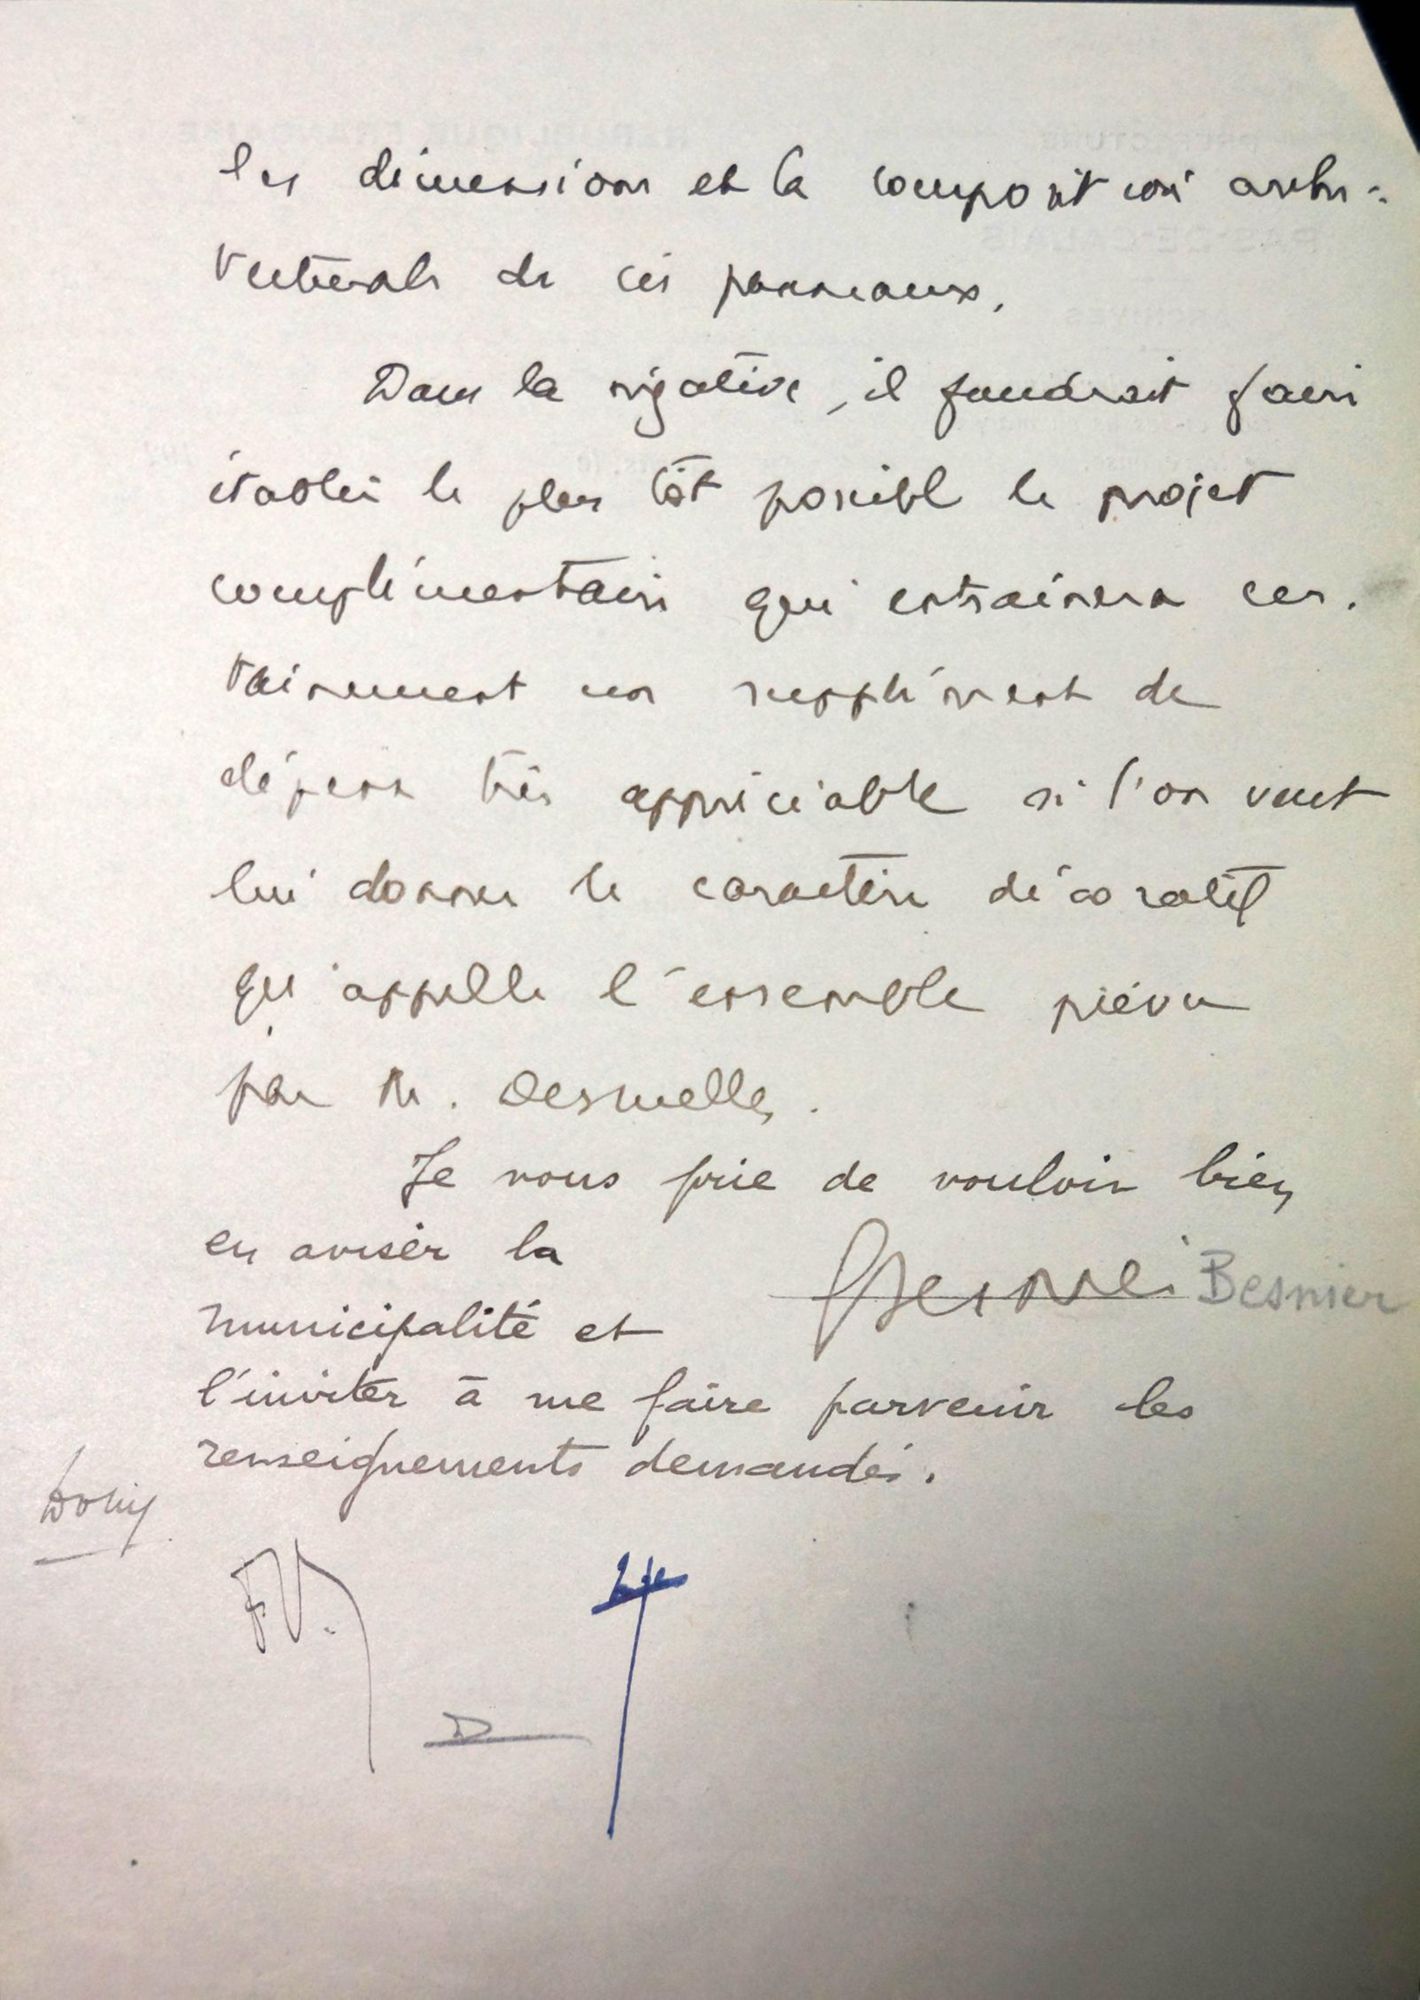 les dimensions et la composition archi-
tecturale de ces panneaux.
Dans la négative, il faudrait faire
établir le plus tôt possible le projet
complémentaire qui entraînera cer-
tainement un supplément de
dépense très appréciable si l'on veut
lui donner le caractère décoratif
qu'appelle l'ensemble prévu
par M. Desruelles.
Je vous prie de vouloir bien
en aviser la
Besnier
municipalité et
l'inviter à me faire parvenir les
renseignements demandés.
F.V.
D